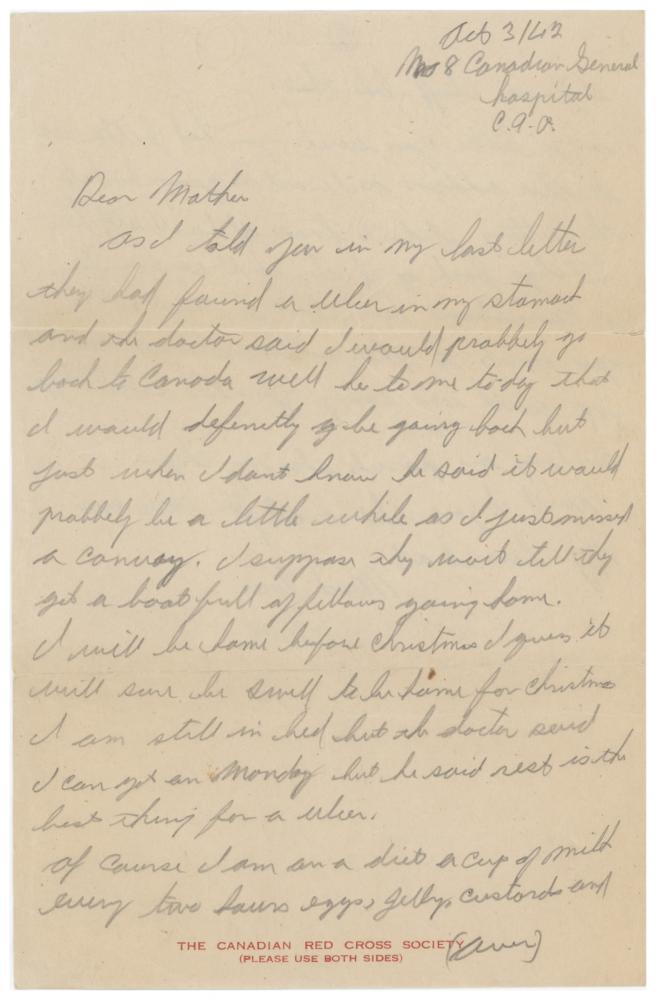 Oct 3/42
No 8 Canadian General
hospital
C.A.O.
Dear Mother
as I told you in my last letter
they had found a ulcer in my stomach
and the doctor said I would probbely go
back to Canada well he to me to-day that
I would defenetly be going back but
just when I dont know he said it would
probbely be a little while as I just missed
a convoy. I suppose they wait till they
get a boat full of fellows going home.
I will be home before Christmas I guess it
will sure be swell to be home for Christmas
I am still in bed but the doctor said
I can get up Monday but he said rest is the
best thing for a ulcer.
Of course I am on a diet a cup of milk
every two hours eggs, jelly, custards and
(Over)
THE CANADIAN RED CROSS SOCIETY
(PLEASE USE BOTH SIDES)